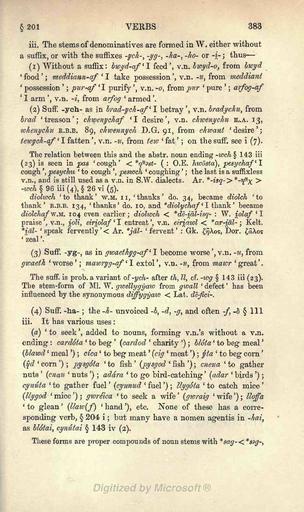 § 201 VERBS 383
iii. The stems of denominatives are formed in W. either without
a suffix, or with the suffixes -ych-, -yg-, -ha-, -ho- or -i̯-; thus—
(1) Without a suffix: bwyd-af ‘I feed’, v.n. bwyd-o, from bwyd
‘food’; meddiann-af ‘I take possession’, v.n. -u, from meddiant
‘possession’; pur-af ‘I purify’, v.n. -o, from pur ‘pure’; arfog-af
‘I arm’, v.n. -i, from arfog ‘armed’.
(2) Suff. -ych- as in brad-ych-af ‘I betray’, v.n. bradychu, from
brad ‘treason’; chwenychaf ‘I desire’, v.n. chwenychu R.A. 13,
whenychu R.B.B. 89, chwennych D.G. 91, from chwant ‘desire’;
tewych-af ‘I fatten’, v.n. -u, from tew ‘fat’; on the suff. see i (7).
The relation between this and the abstr. noun ending -wch § 143 iii
(23) is seen in pas ‘cough’
cough’, pesychu ‘to cough’, peswch ‘coughing’; the last is a suffixless
v.n., and is still used as a v.n. in S.W. dialects.
-wch § 96 iii (4), § 26 vi (5).
diolwch ‘to thank’ W.M. 11, ‘thanks’ do. 34, became diolch ‘to
thank’ R.B.B. 134, ‘thanks’ do. 10, and ‘diolychaf’ ‘I thank’ became
diolchaf W.M. 104 even earlier; diolwch
praise’, v.n. ioli, eiriolaf ‘I entreat’, v.n.
‘speak fervently’
‘zeal’.
(3) Suff. -yg-, as in gwaethyg-af ‘I become worse’, v.n. -u, from
gwaeth ‘worse’; mawryg-af ‘I extol’, v.n. -u, from mawr ‘great’.
The suff. is prob. a variant of -ych- after th, ll, ef. -wg § 143 iii (23).
The stem-form of Ml. W. gwellygyaw from gwall ‘defect’ has been
influenced by the synonymous diffygyaw < Lat. dē-fici-.
(4) Suff. -ha-; the -h- unvoiced -b, -d, -g, and often -f, -δ § 111
iii. It has various uses:
(a) ‘to seek’, added to nouns, forming v.n.'s without a v.n.
ending: cardóta ‘to beg’ (cardod ‘charity’); blóta ‘to beg meal’
(blawd ‘meal’); cíca ‘to beg meat’ (cig ‘meat’); ýta ‘to beg corn’
(ŷd ‘corn’); pysgóta ‘to fish’ (pysgod ‘fish’); cnéua ‘to gather
nuts’ (cnau ‘nuts’); adára ‘to go bird-catching’ (adar ‘birds’);
cynúta ‘to gather fuel’ (cynnud ‘fuel’); llygóta ‘to catch mice’
(llygod ‘mice’); gwréica ‘to seek a wife’ (gwraig ‘wife’); lloffa
‘to glean’ (llaw(f) ‘hand’), etc. None of these has a corre-
sponding verb, § 204 i; but many have a nomen agentis in -hai,
as blótai, cynútai § 143 iv (2).
These forms are proper compounds of noun stems with *sag- < *səg-,
Digitized by Microsoft ®